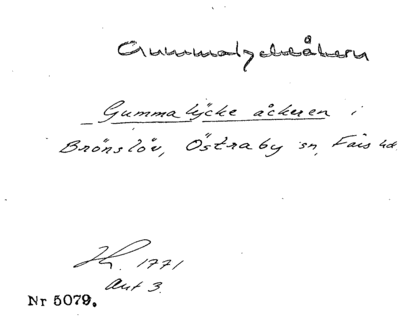 Gummalyckeåkern
Gummalÿcke åckeren i
Brönslöv, Östraby sn, Färs hd.
1771
Akt 3.
Nr 5079.